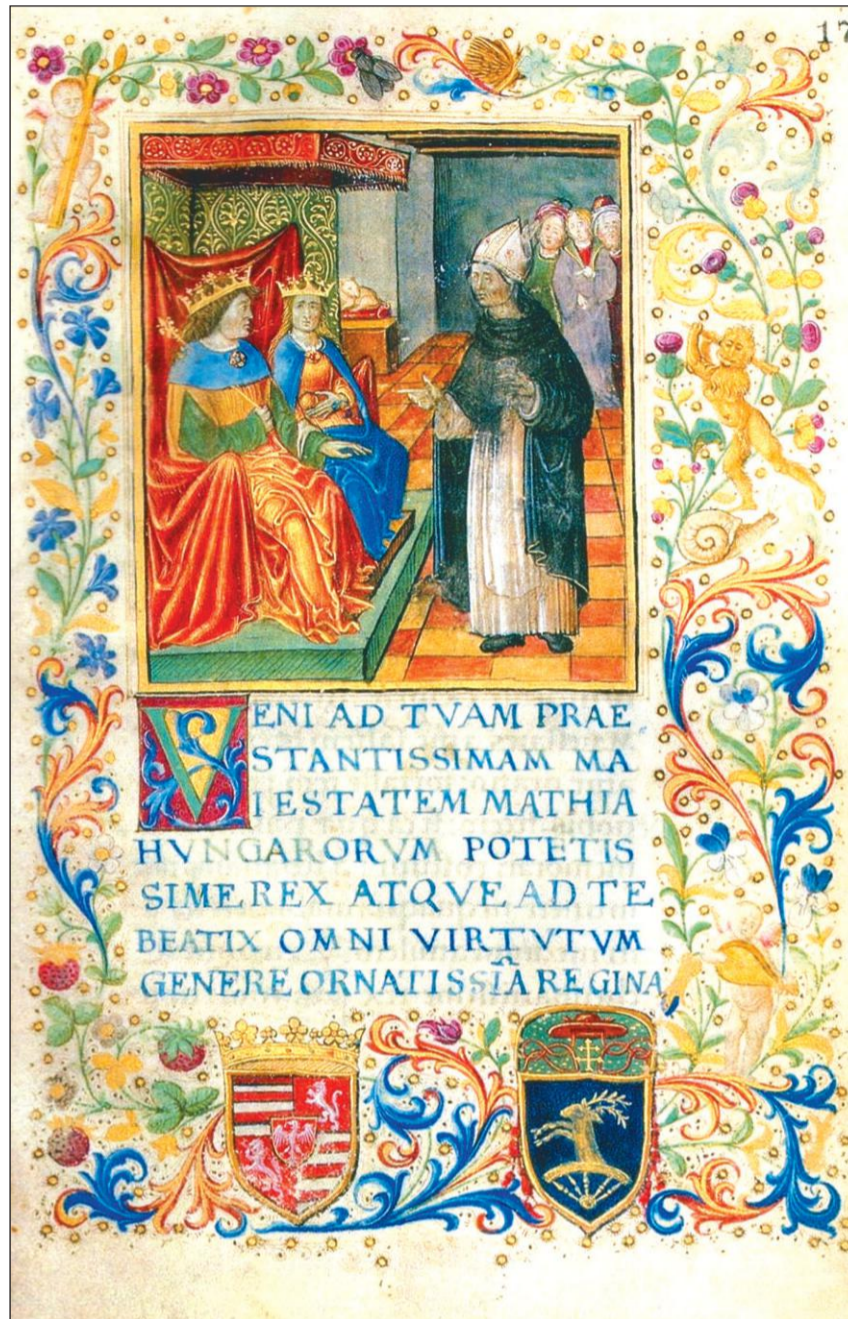 17
VENI AD TVAM PRAE
STANTISSIMAM MA
IESTATEM MATHIA
HVNGARORVM POTETIS
SIME REX ATQVE AD TE
BEATIX OMNI VIRTVTVM
GENERE ORNATISSIA̅ REGINA